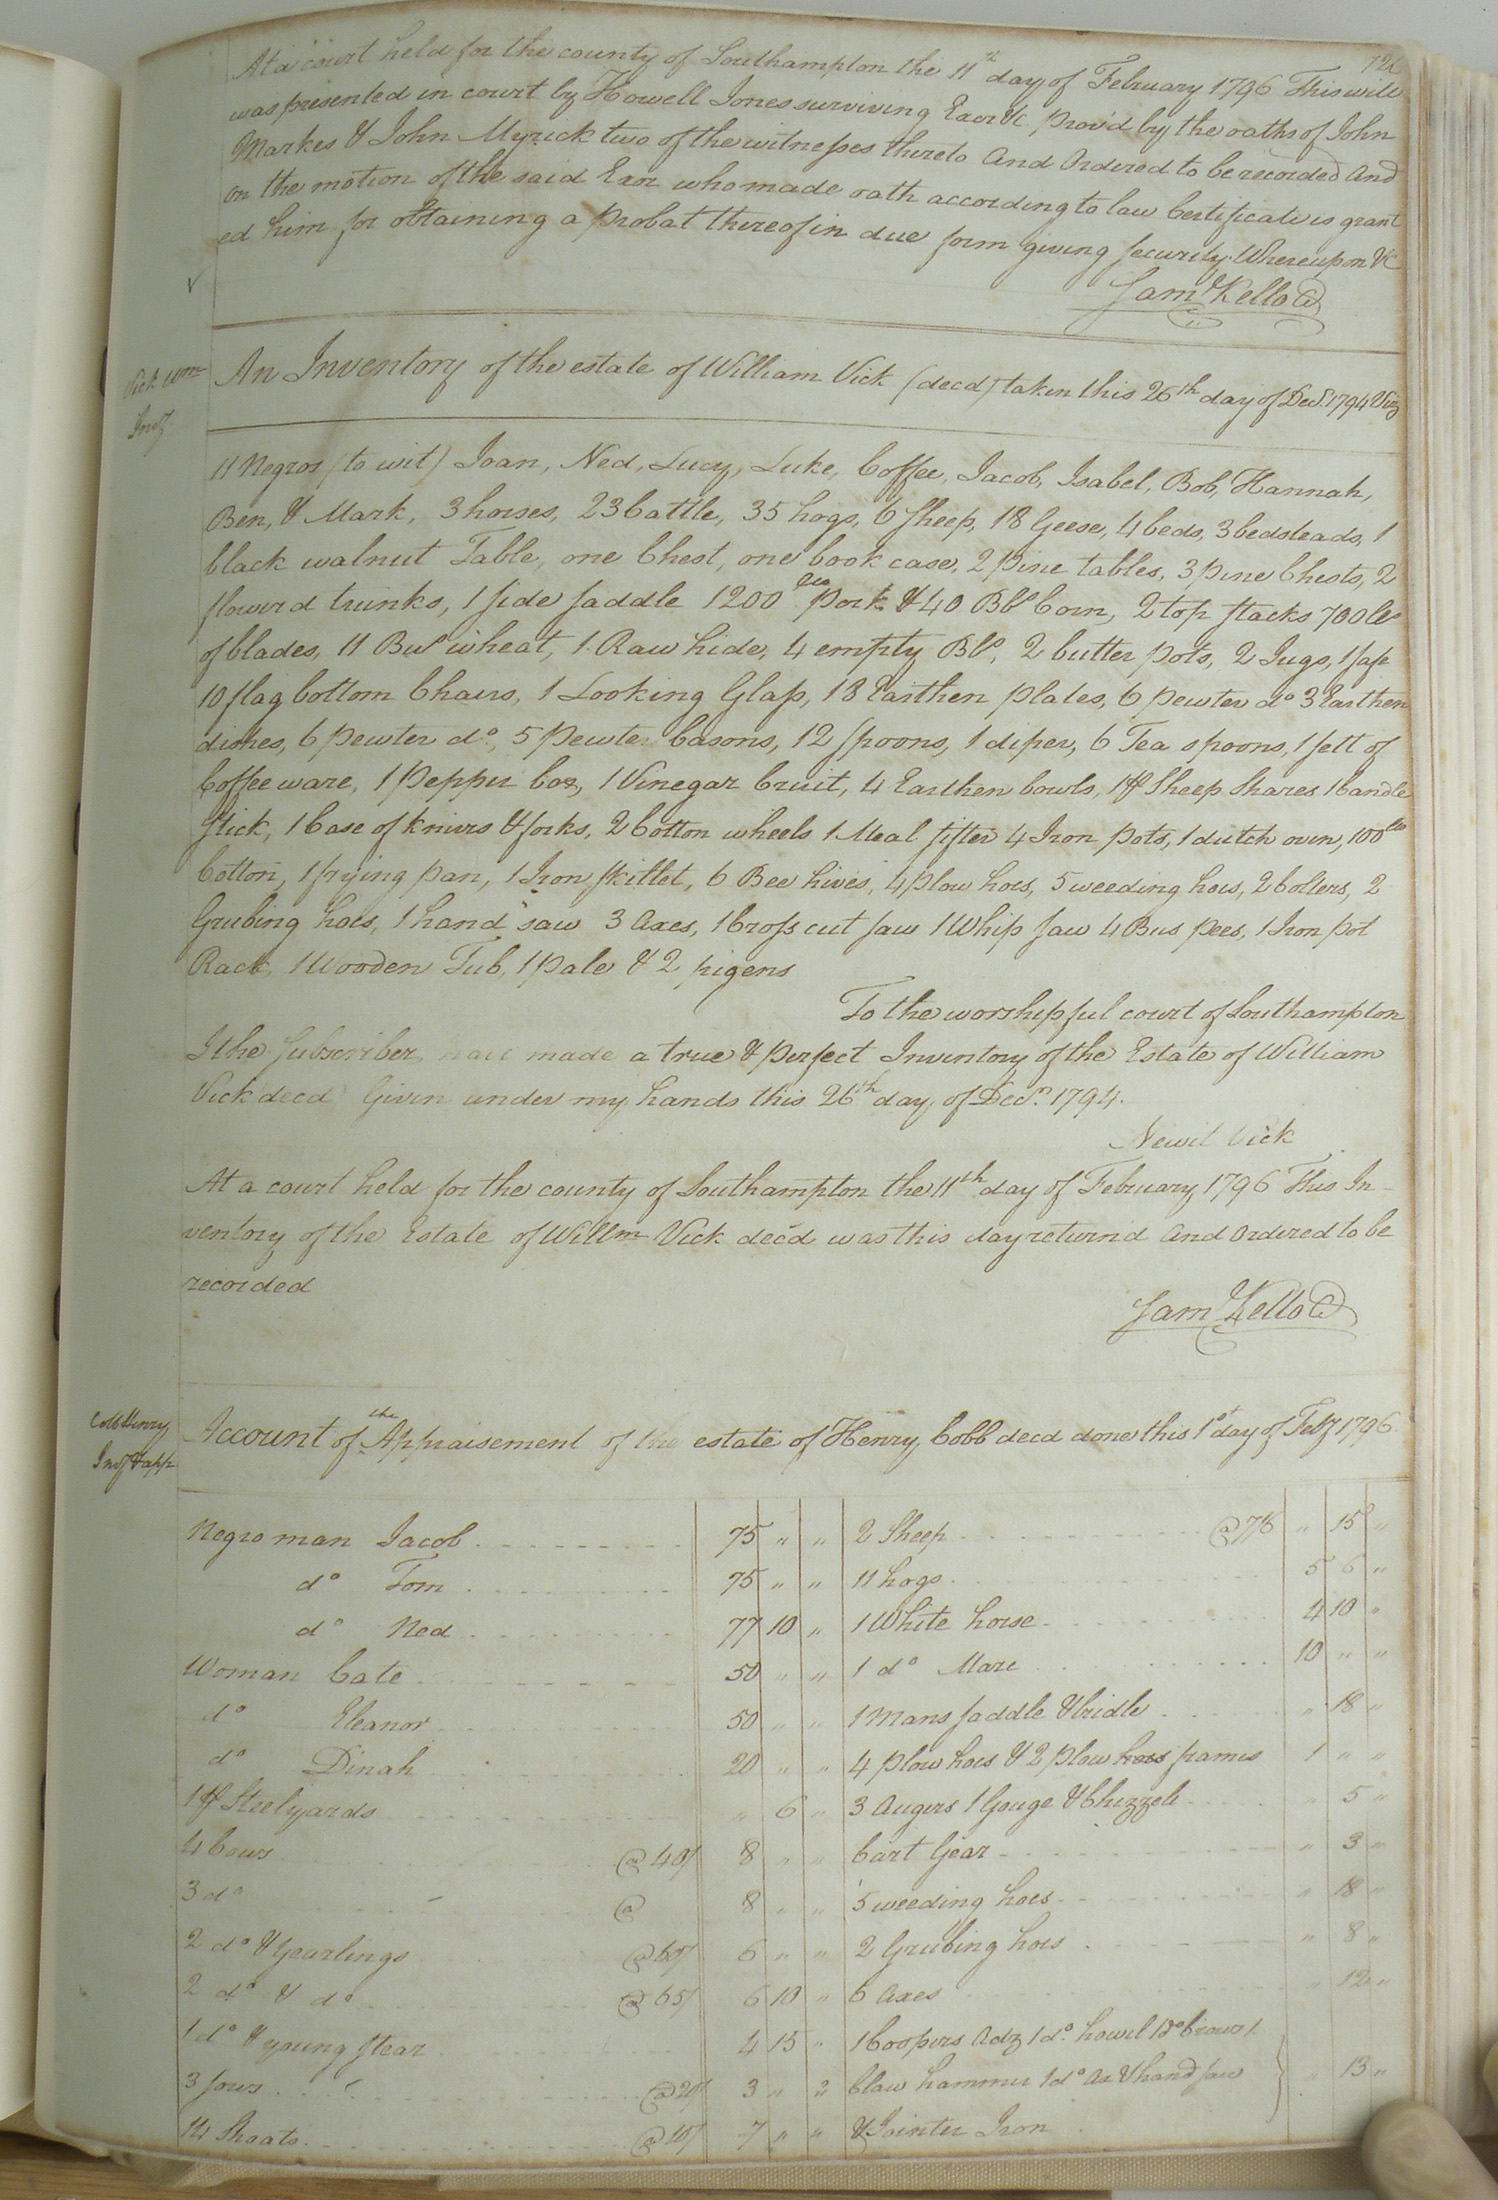 At a court held for the county of Southampton the 11th day of February 1796 This will
was presented in court by Howell Jones surviving Exor &c prov'd by the oaths of John
Markes & John Myrick two of the witnesses thereto And Ordered to be recorded And
on the motion of the said Exor who made oath according to law Certificate is grant
ed him for obtaining a probat thereof in due form giving security. Whereupon &c
Saml Kello C
Vick Wm
Invy
An Inventory of the estate of William Vick (decd) taken this 26th day of Decr. 1794 Viz
11 Negros (to wit) Joan, Ned, Lucy, Luke, Coffee, Jacob, Isabel, Bob, Hannah,
Ben, & Mark, 3 horses, 23 Cattle, 35 hogs, 6 Sheep, 18 Geese, 4 beds, 3 bedsteads, 1
black walnut Table, one Chest, one book case, 2 pine tables, 3 pine Chests, 2
flowerd trunks, 1 side saddle 1200 lbs pork & 40 Bbs Corn, 2 top stacks 700 lbs
of blades, 11 Bus wheat, 1 Raw hide, 4 empty Bls, 2 butter pots, 2 Jugs, 1 safe
10 flag bottom Chairs, 1 Looking Glass, 18 Earthen plates, 6 pewter do 3 Earthen
dishes, 6 pewter do, 5 pewter basons, 12 spoons, 1 diper, 6 Tea spoons, 1 sett of
Coffee ware, 1 Pepper box, 1 Vinegar Cruit, 4 Earthen bowls, 1 pr Sheep Shares 1 Candle
stick, 1 Case of knives & forks, 2 Cotton wheels 1 Meal sifter 4 Iron pots, 1 dutch oven, 100 lbs
Cotton, 1 frying pan, 1 Iron skillet, 6 Bee hives, 4 plow hoes, 5 weeding hoes, 2 Collers, 2
Grubing hoes, 1 hand saw 3 Axes, 1 Cross cut saw 1 Whip saw 4 Bus pees, 1 Iron pot
Rack, 1 Wooden Tub, 1 pale & 2 pigens
To the worshipful court of Southampton
I the Subscriber have made a true & perfect Inventory of the Estate of William
Vick decd Given under my hands this 26th day of Decr. 1794.
Newit Vick
At a court held for the county of Southampton the 11th day of February 1796 This In-
ventory of the Estate of Willm Vick decd was this day returnd And Ordered to be
recorded
Saml Kello C
Cobb Henry
Invy & app
Account of the Appraisement of the estate of Henry Cobb decd done this 1st day of Feby 1796
Negro man Jacob 75 " " 2 Sheep @ 7/6 " 15 "
do Tom 75 " " 11 hogs 5 6 "
do Ned 77 10 " 1 White horse 4 10 "
Woman Cate 50 " " 1 do Mare 10 " "
do Eleanor 50 " " 1 Mans saddle & bridle " 18 "
do Dinah 20 " " 4 plow hoes & 2 plow hoes frames 1 " "
1 pr Steelyards " 6 " 3 Augers 1 Gouge & Chizzele " 5 "
4 Cows @ 40/ 8 " " Cart Gear " 3 "
3 do @ 8 " " 5 weeding hoes " 18 "
2 do & Yearlings @ 60/ 6 " " 2 Grubing hoes " 8 "
2 do & do @ 65/ 6 10 " 6 Axes " 12 "
1 do & young stear 4 15 " 1 Coopers Adz 1 do. howel
3 sows @ 20/ 3 " " Claw hammer 1 do Ax & hand saw " 13 "
14 Shoats @ 10/ 7 " " & Jointer Iron